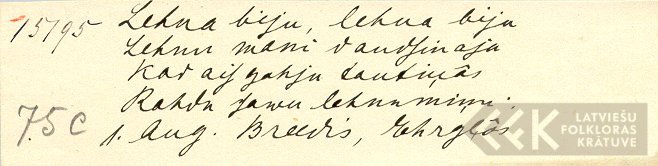 15795 Lehna biju, lehna biju
Lehnu mani daudsinaja
Kad aisgahju tautiņâs
Rahdu sawu lehnumiņu.
75C 1. Aug. Breedis, Ehrgļôs
LATVIEŠU
FOLKLORAS
KRĀTUVE